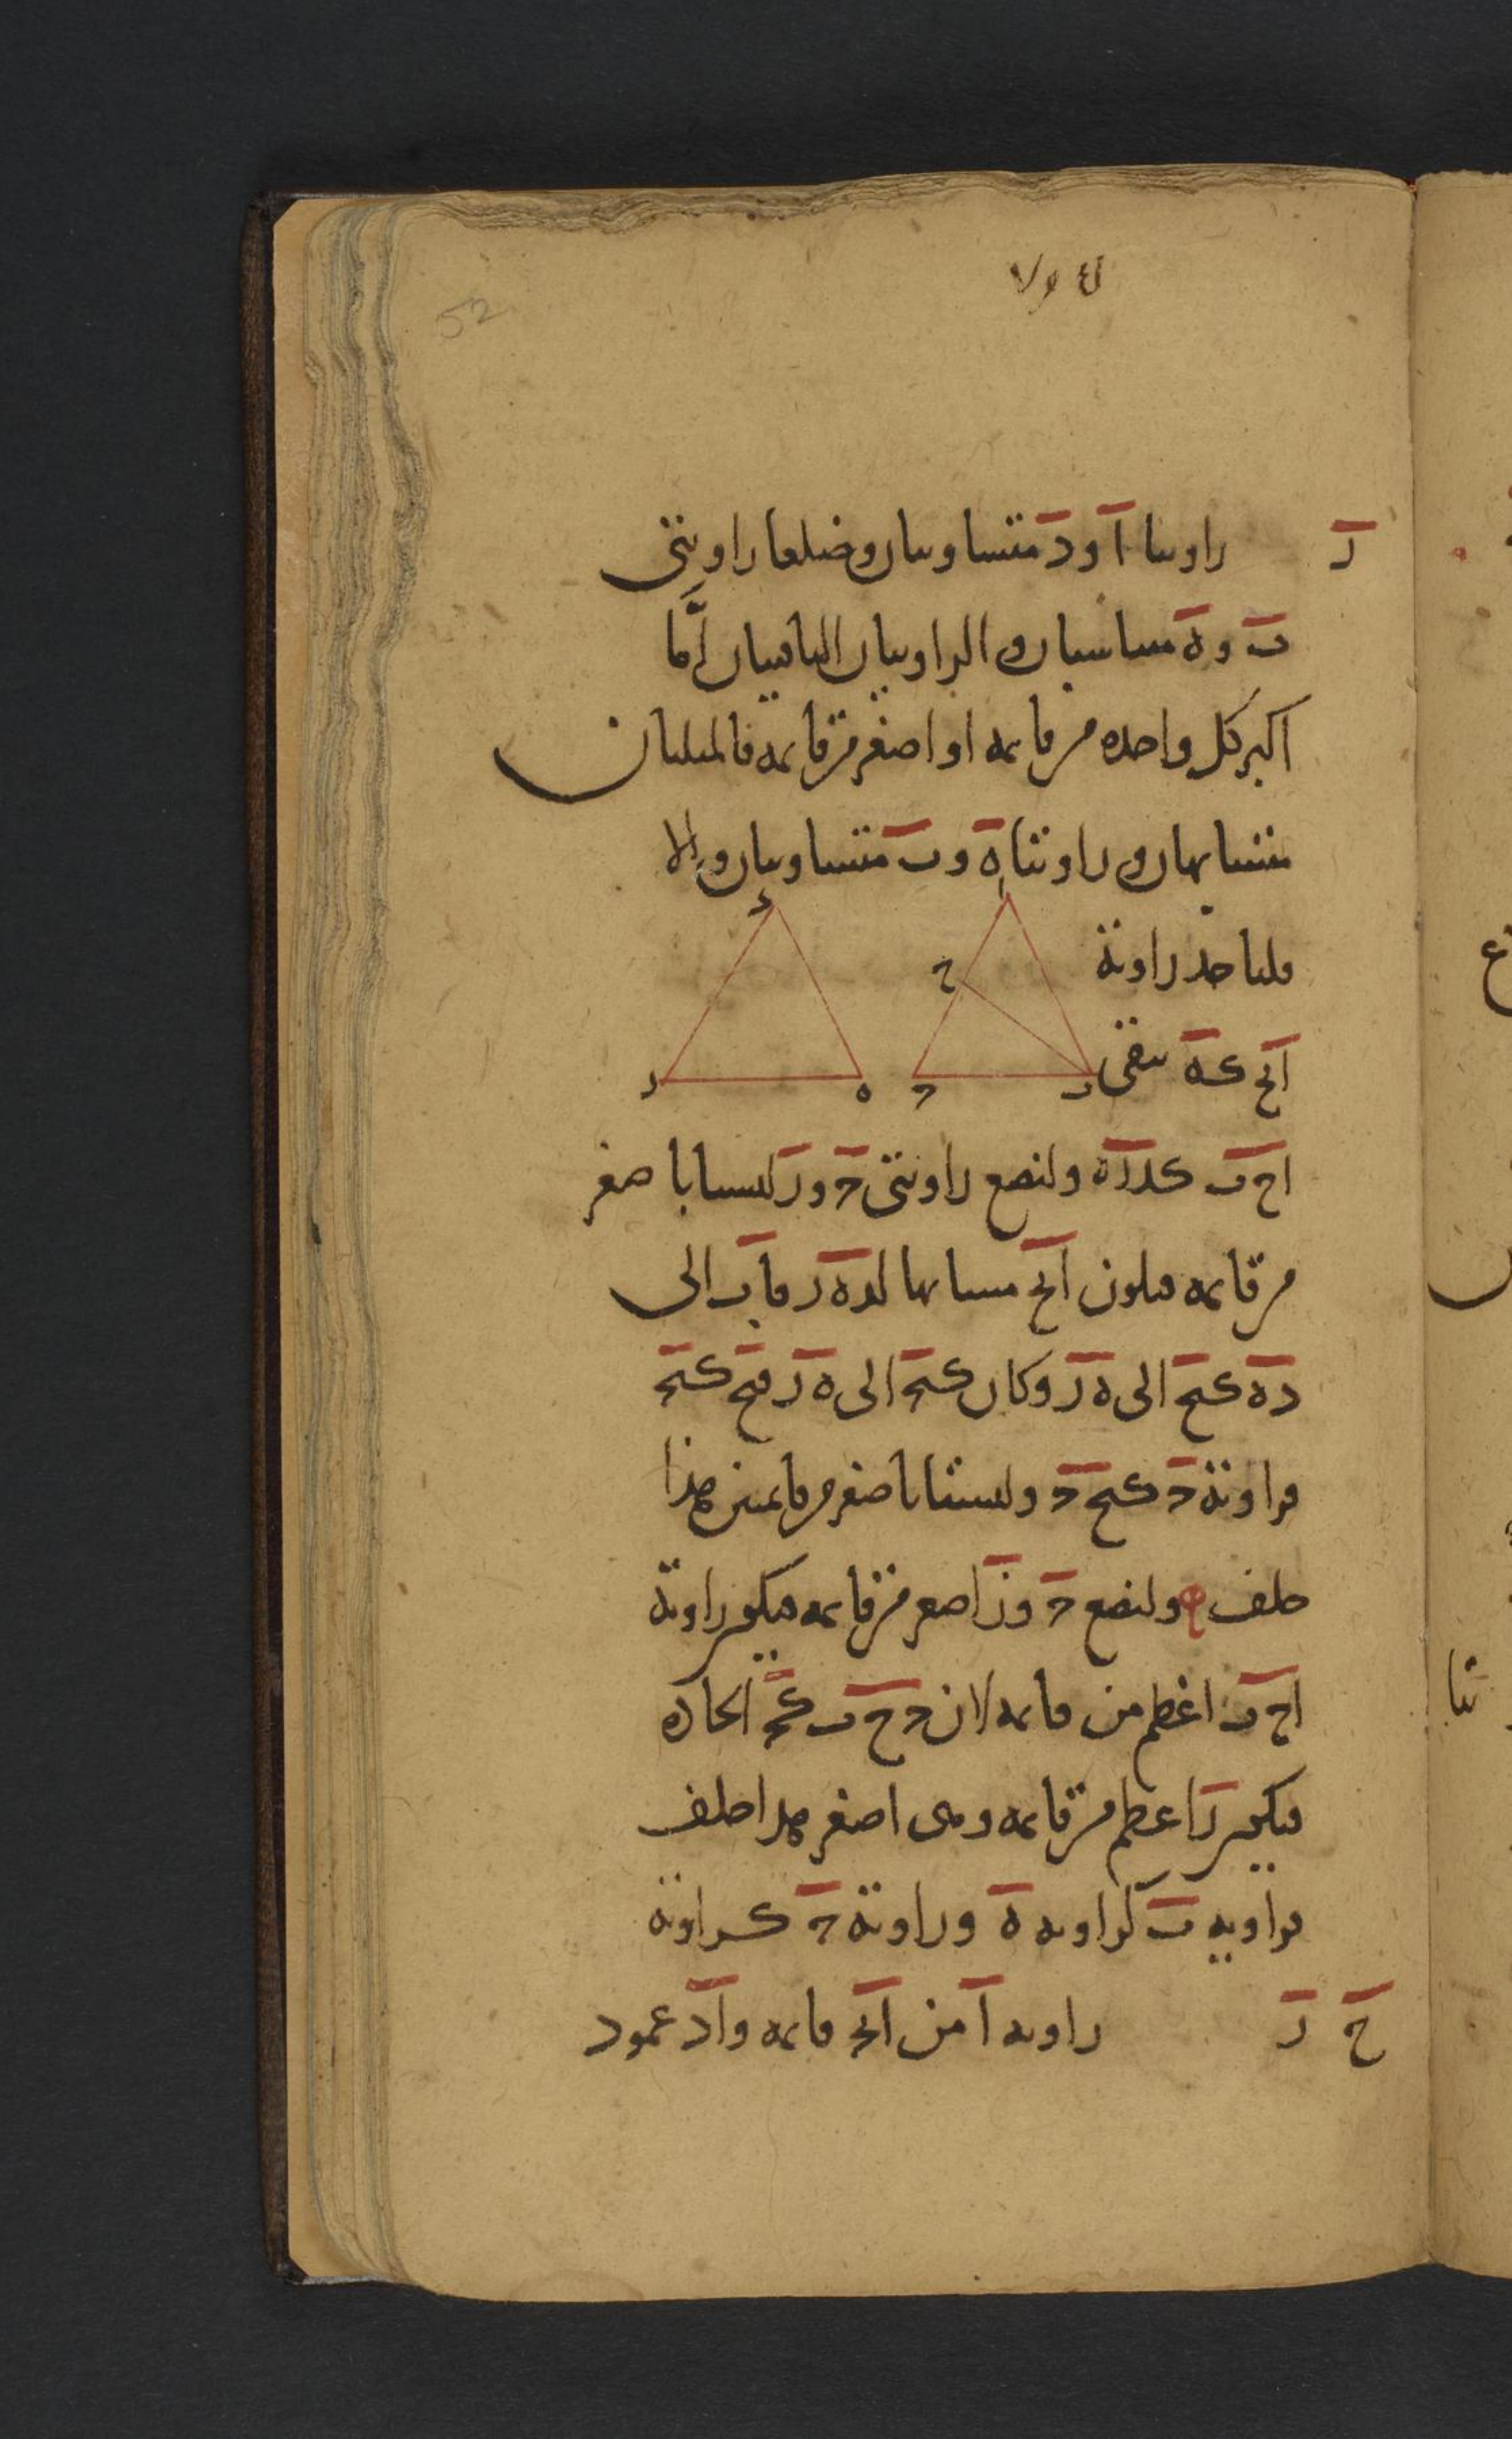 52
ز زاويتا آ و د متساويتان وضلعا زاويتي
ب و ه متناسبان و الزاويتان الباقيتان اما
اكبر كل واحده من قايمه او اصغر من قايمه فالمثلثان
متشابهان و زاويتا ه و ب متساويتان و الا
د ا
فلناخذ زاوية
ح
ا ب ح كه يبقى
ز ه ح ب
ا ح ب ك د ز ه ولنضع زاويتي ح و ز ليستا باصغر
من قايمه فيكون ا ب ح مشابها لد ه ز فا ب الى
د ه ك ب ح الى ه ز وكان ك ب ح الى ه ز فب ح ك ب ح
فزاوية ح ك ب ح ح وليستا باصغر من قايمتين هذا
خلف ولنضع ح و ز اصغر من قايمه فيكون زاوية
ا ح ب اعظم من قايمه لان ح ح ب ك ح الحاده
فيكون ز اعظم من قايمه وهي اصغر هذا خلف
فزاويه ب كزاويه ه وزاوية ح كزاوية
ز
ح زاويه آ من ا ب ح قايمه و ا د عمود